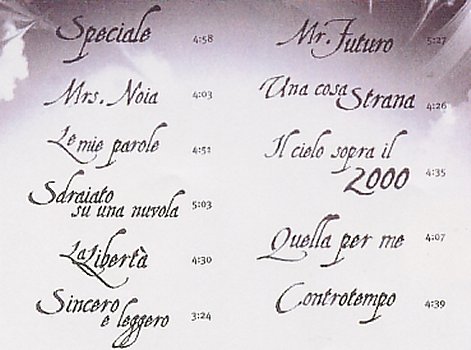 Speciale 4:58
Mrs. Noia 4:03
Le mie parole 4:52
Sdraiato
su una nuvola 5:03
La Libertà 4:30
Sincero
e leggero 3:24
Mr. Futuro 5:27
Una cosa
Strana 4:26
Il cielo sopra il
2000 4:35
Quella per me 4:07
Controtempo 4:39